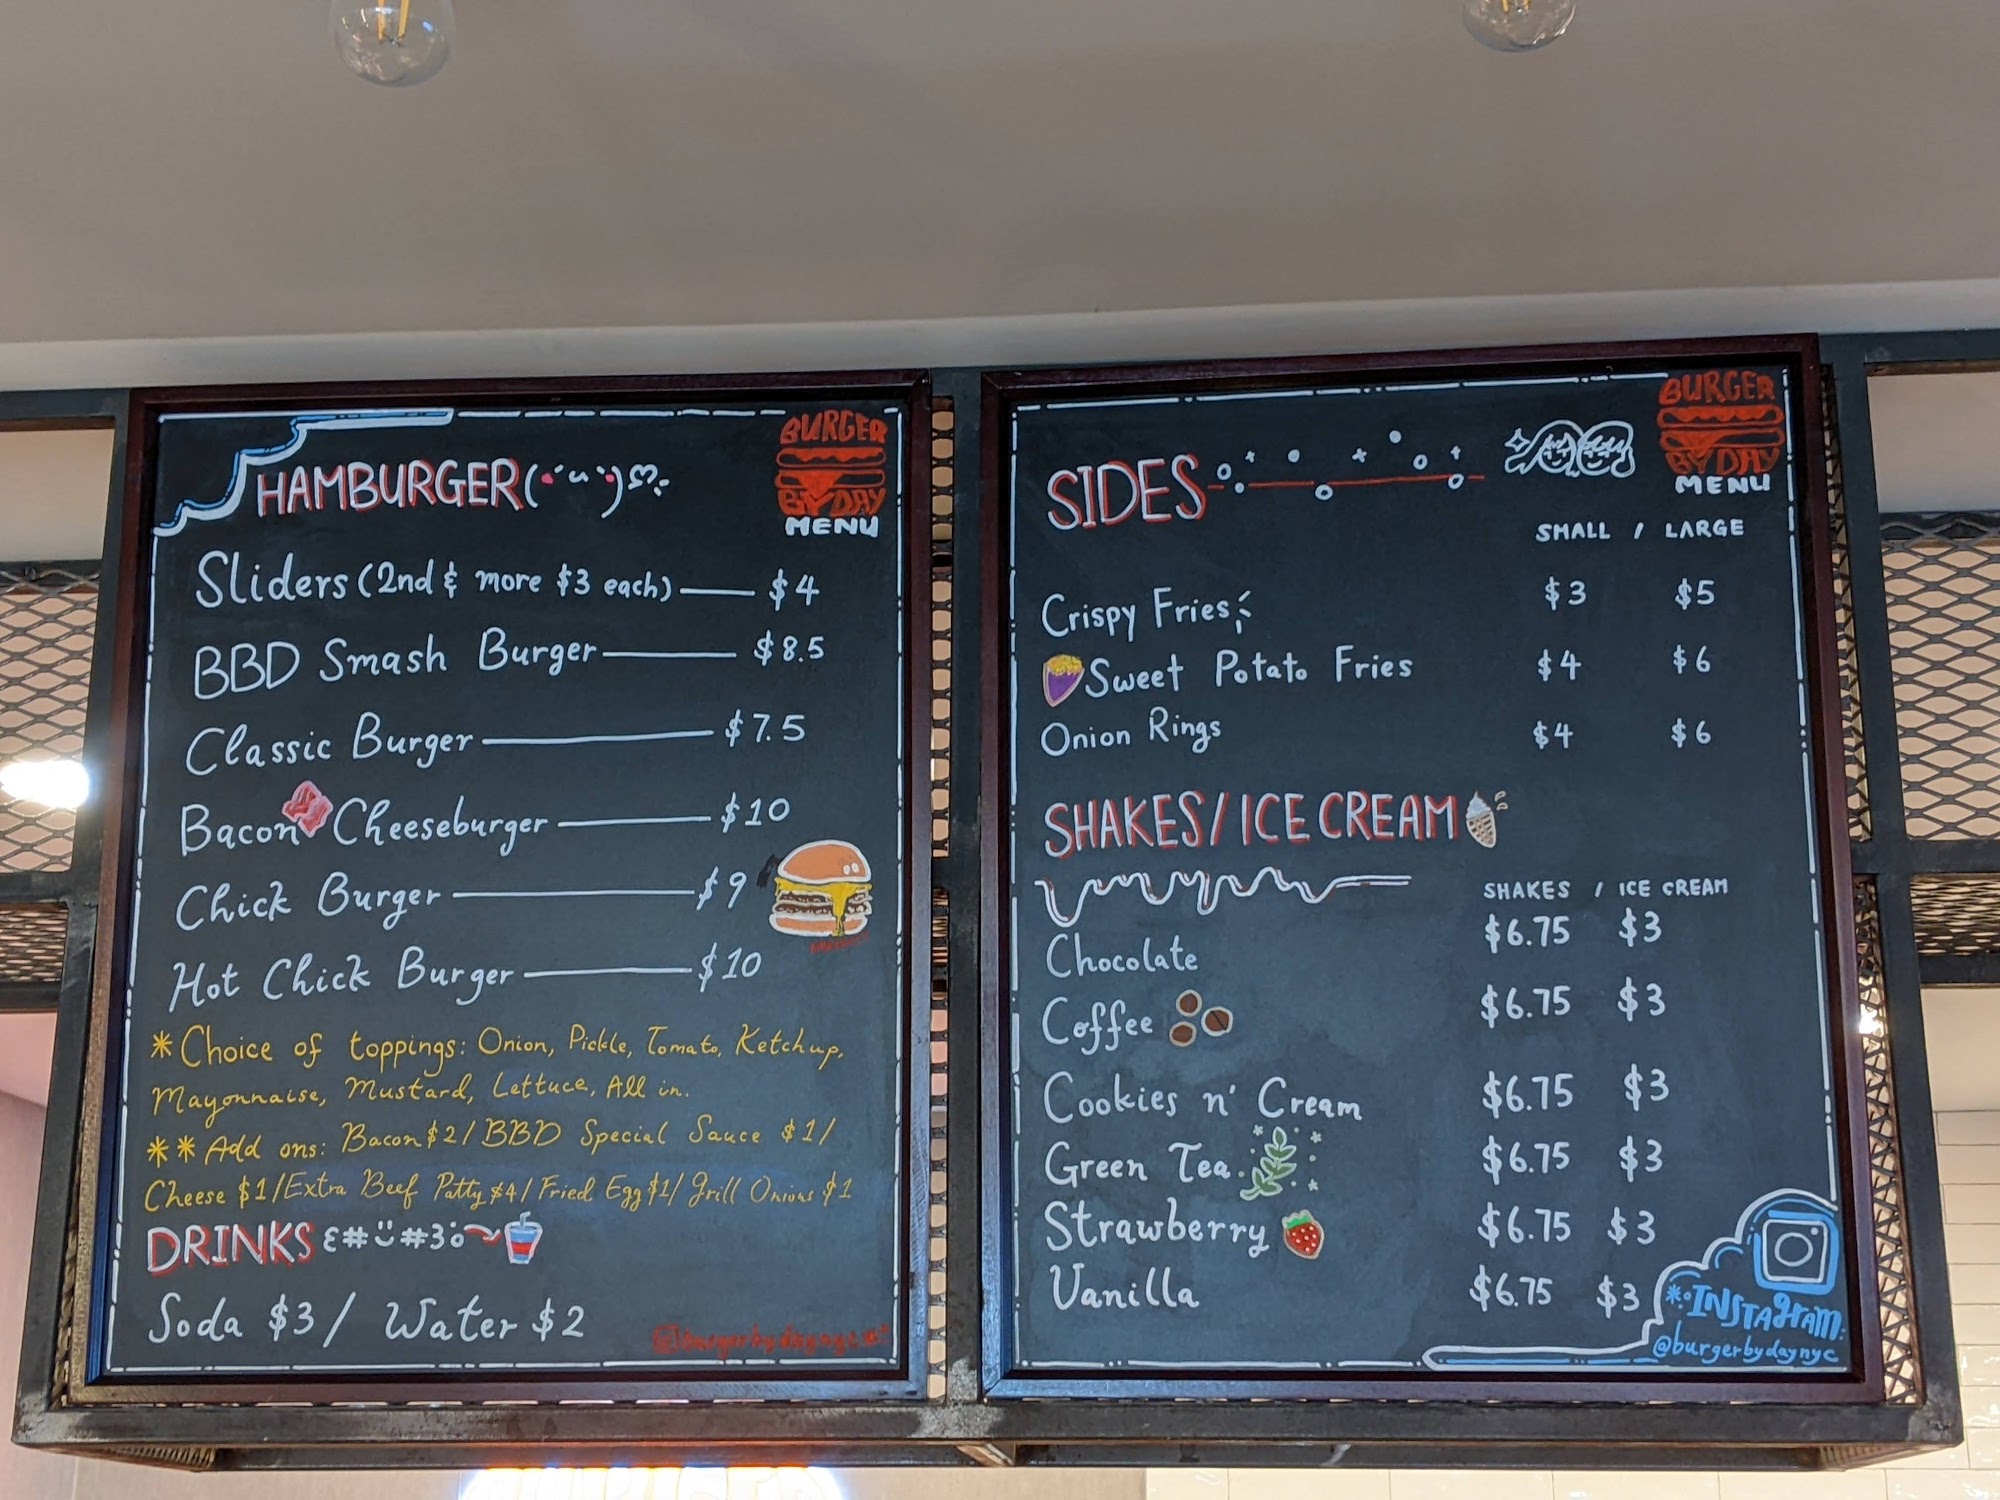 HAMBURGER
BURGER
BY DAY
MENU
Sliders (2nd & more $3 each) $4
BBD Smash Burger $8.5
Classic Burger $7.5
Bacon Cheeseburger $10
Chick Burger $9
Hot Chick Burger $10
* Choice of toppings: Onion, Pickle, Tomato, Ketchup,
Mayonnaise, Mustard, Lettuce, All in.
** Add ons: Bacon $2/ BBD Special Sauce $1/
Cheese $1/Extra Beef Patty $4/Fried Egg $1/ Grill Onions $1
DRINKS
Soda $3/ Water $2
@burgerbydaynyc
SIDES
BURGER
BY DAY
MENU
SMALL / LARGE
Crispy Fries $3 $5
Sweet Potato Fries $4 $6
Onion Rings $4 $6
SHAKES/ICE CREAM
SHAKES / ICE CREAM
Chocolate $6.75 $3
Coffee $6.75 $3
Cookies n' Cream $6.75 $3
Green Tea $6.75 $3
Strawberry $6.75 $3
Vanilla $6.75 $3
INSTAGRAM:
@burgerbydaynyc